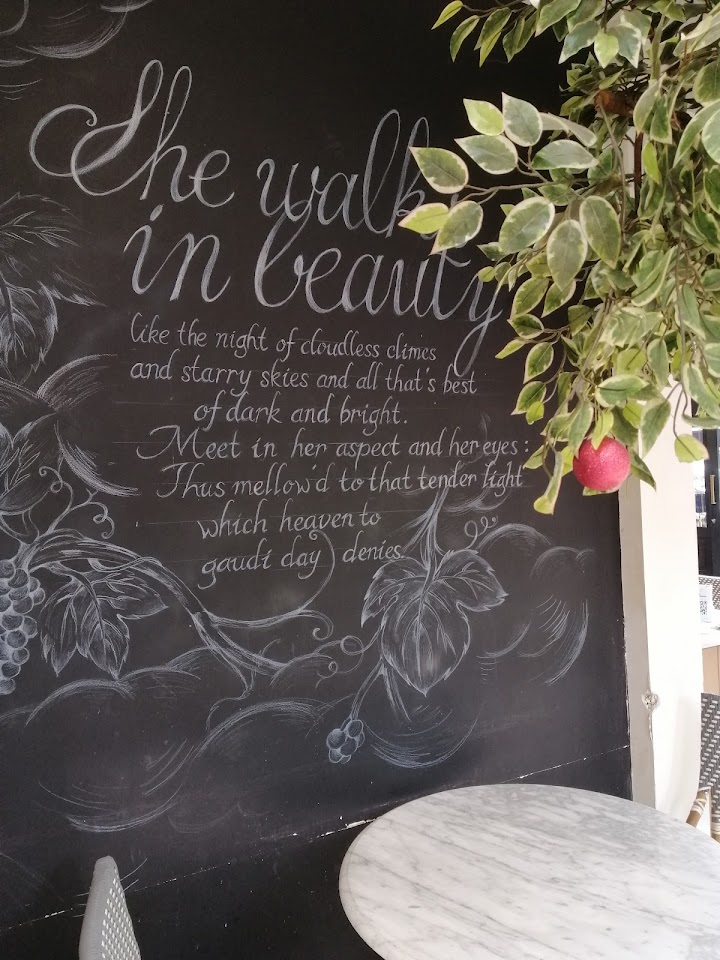 She walks
in beauty
like the night of cloudless climes
and starry skies and all that's best
of dark and bright.
Meet in her aspect and her eyes:
Thus mellow'd to that tender light
which heaven to
gaudi day denies